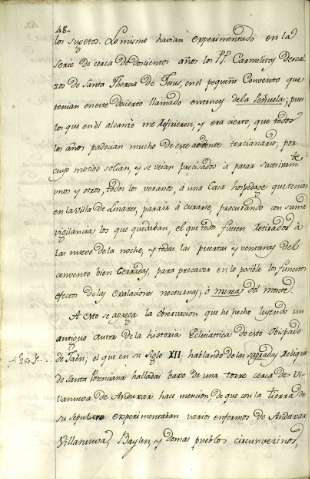 48.
los sugetos. Lo mismo havian experimentado en la
serie de cerca de doscientos años los PP. Carmelitas Descal-
zos de Santa Theresa de Jesus, en el pequeño Convento que
tenian en este Desierto llamado entonces de la Peñuela; pues
los que en él alcanzé me refirieron, y era cierto, que todos
los años padecian mucho de este accidente tercianario; por
cuyo motivo solian, y se veian precisados à pasar
unos y otros, todos los veranos à una Casa hospicio que tenian
en la Villa de Linares, para ir à curarse, procurando con suma
vigilancia los que quedaban, el que todos fuesen retirados à
las nueve de la noche, y todas las puertas y ventanas del
camento bien cerradas, para precaver en lo posible los funestos
efectos de las exalaciones nocturnas, ó del monte.
A esto se agrega la observacion que he hecho leyendo un
antiguo autor de la historia Eclesiastica de este Obispado
de Jaén; el que en su siglo XII hablando de las sagradas reliquias
de Santa Potenciana halladas baxo de una torre cerca de Vi-
llanueva de Andujar hace mencion de que con la tierra de
su sepulcro experimentaban varios enfermos de Andujar
Villanueva, Baylen, y demas pueblos circunvecinos,